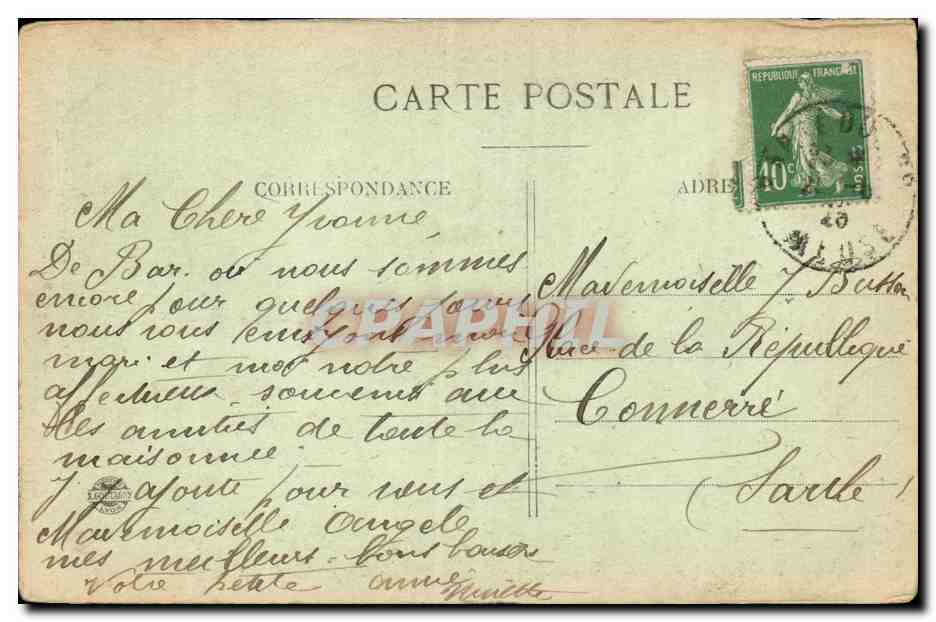 CARTE POSTALE
REPUBLIQUE FRANÇAISE
10c
POSTES
MEUSE
CORRESPONDANCE
ADRE
Ma Chère Yvonne,
De Bar. où nous sommes
encore pour quelques jours
nous vous envoyons mon
mari et moi notre plus
affectueux souvenirs avec
les amitiés de toute la
maisonnée.
J'ajoute pour vous et
Mademoiselle Angele
mes meilleurs bons baisers
Votre petite amie
Ninette
Mademoiselle Y Busson
Place de la République
Connerré
Sarthe
CPAPHIL
LYON